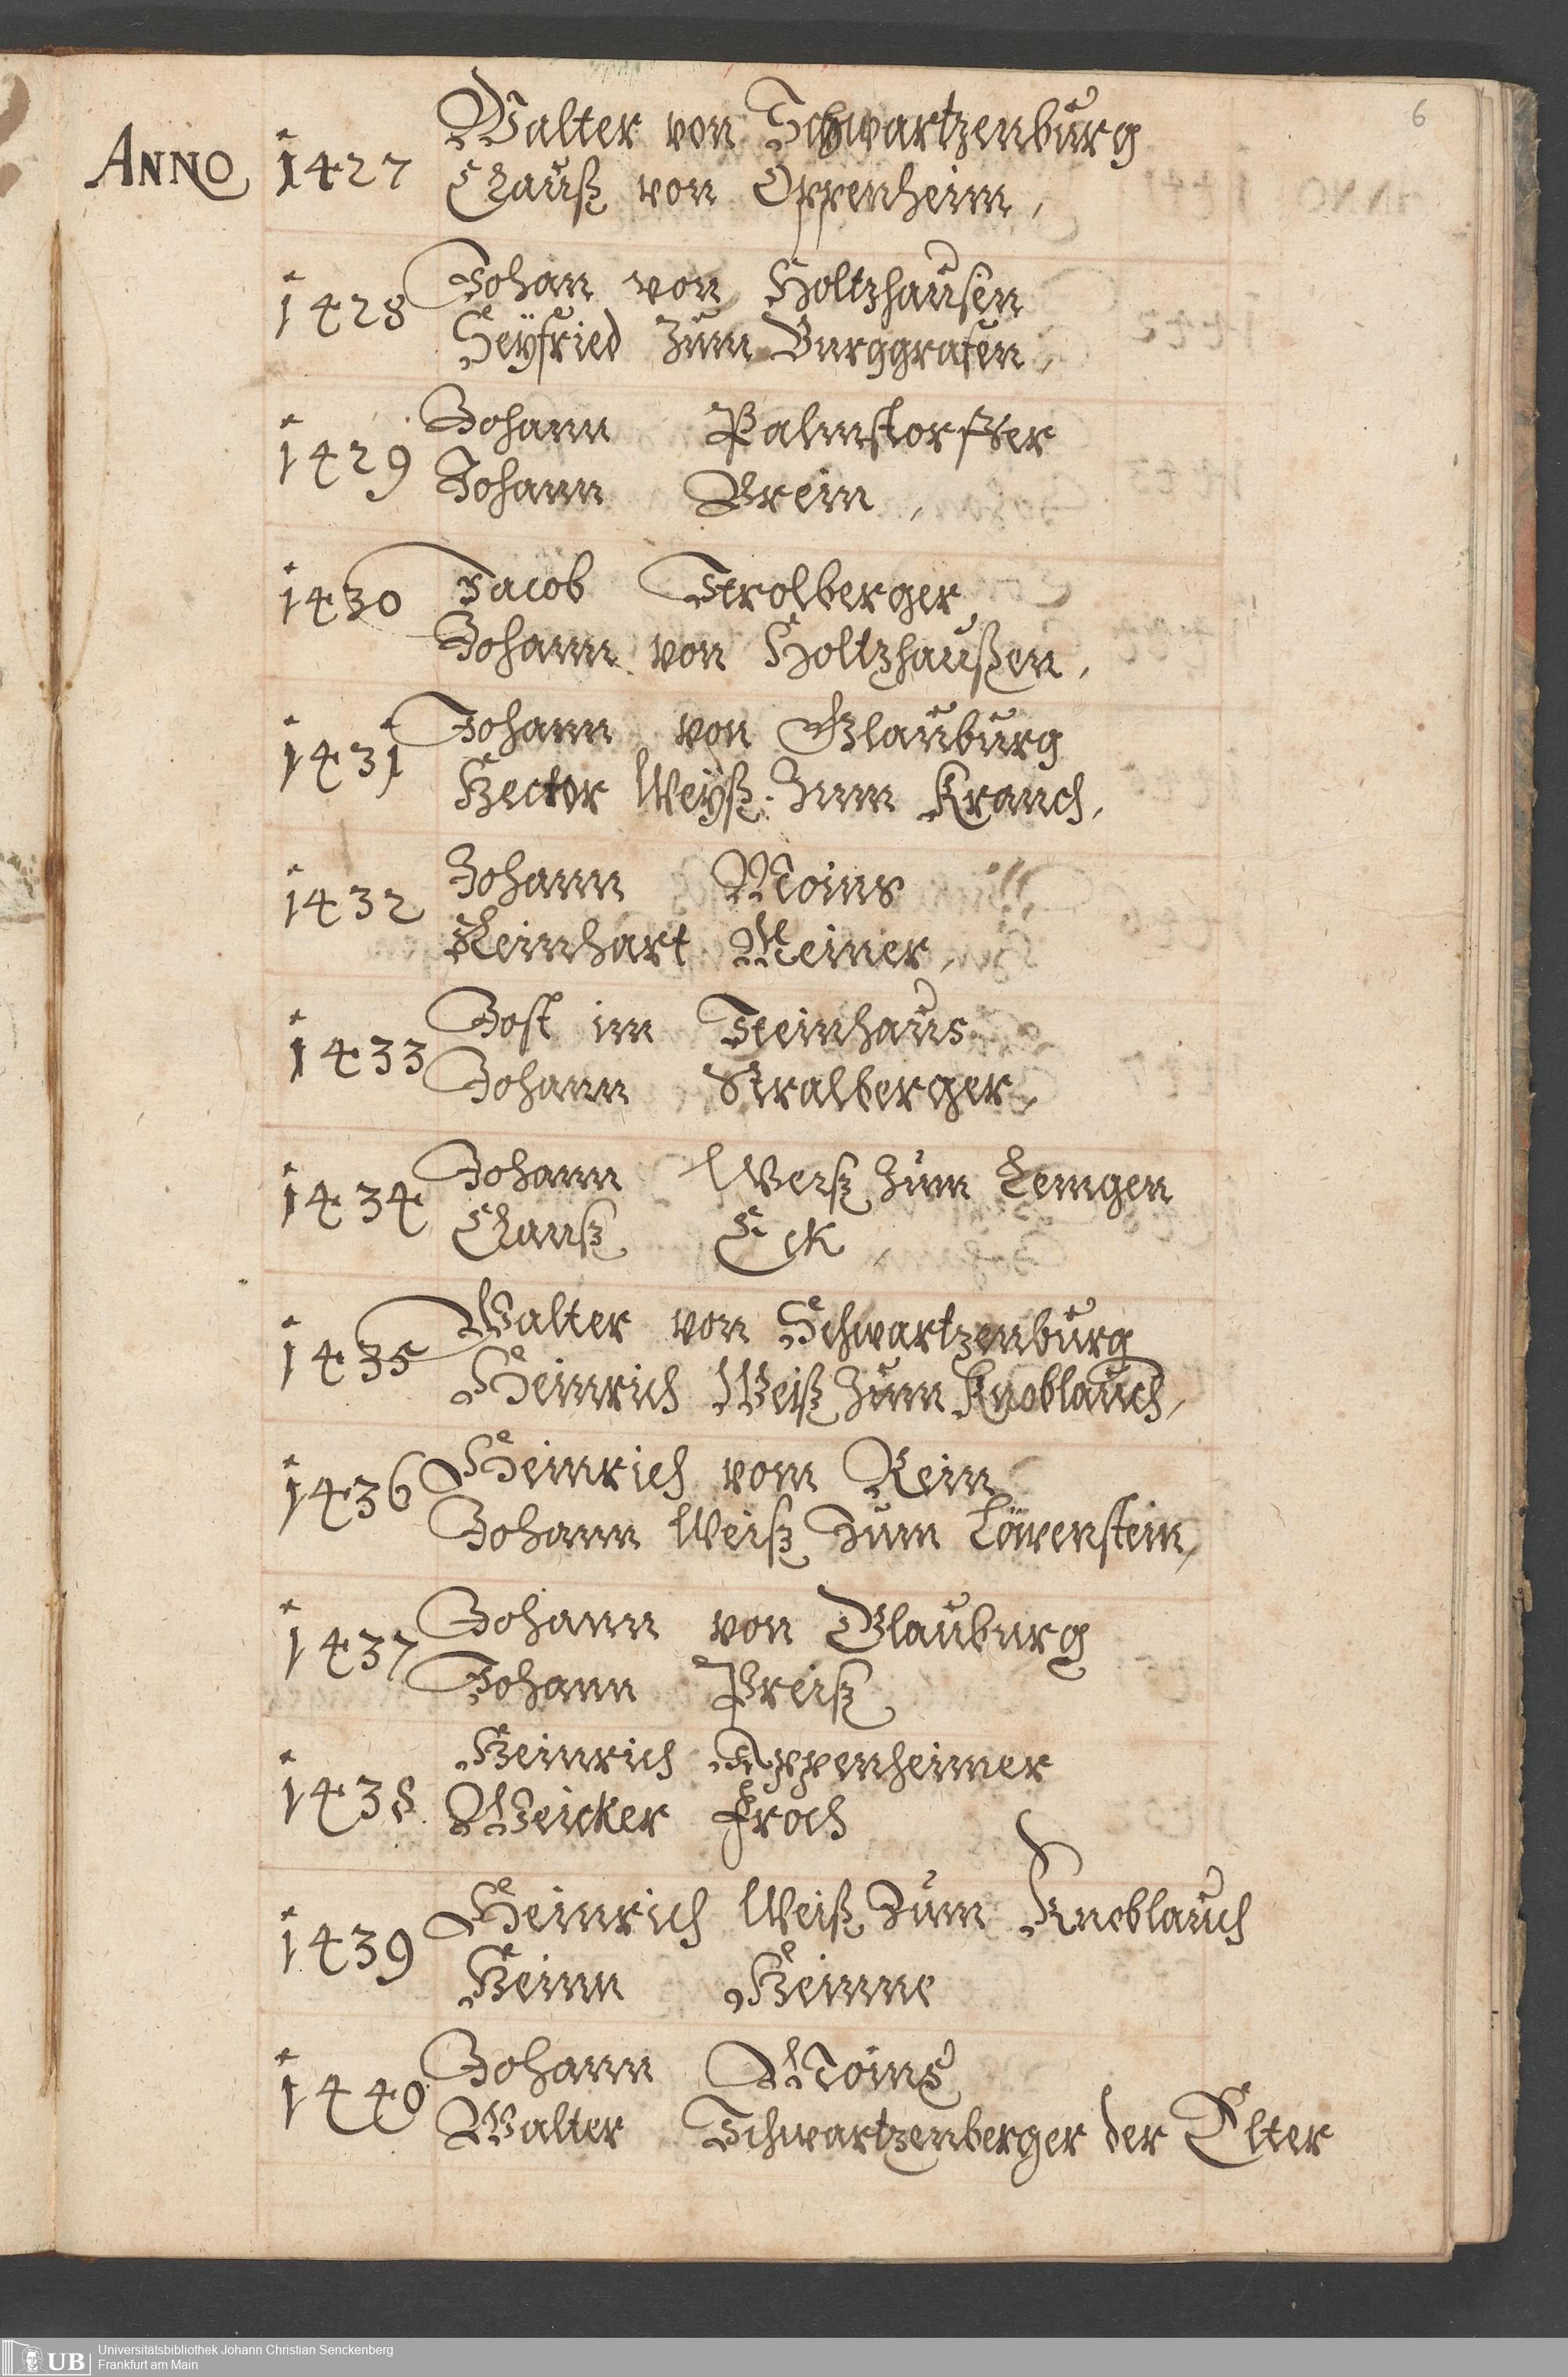 6
ANNO 1427 Walter von Schwartzenburg
Clauß von Oppenheim,
1428 Johan von Holtzhausen
Seyfried zum Burggrafen,
1429 Johann Palmstorffer
Johann Brein,
1430 Jacob Strolberger,
Johann von Holtzhaußen,
1431 Johann von Glauburg
Hector Weyß zum Kranch,
1432 Johann Moins
Reinhart Meiner,
1433 Jost im Steinhaus
Johann Stralberger,
1434 Johann Weiß zum Lemgen
Clauß Eck,
1435 Walter von Schwartzenburg
Heinrich Weiß zum Knoblauch,
1436 Heinrich vom Rein
Johann Weiß zum Löwenstein,
1437 Johann von Glauburg
Johann Preiß
1438 Heinrich Appenheimer
Weicker Frosch
1439 Heinrich Weiß zum Knoblauch
Heinn Heimne
1440 Johann Moins
Walter Schwartzenberger der Elter
UB Universitätsbibliothek Johann Christian Senckenberg
Frankfurt am Main